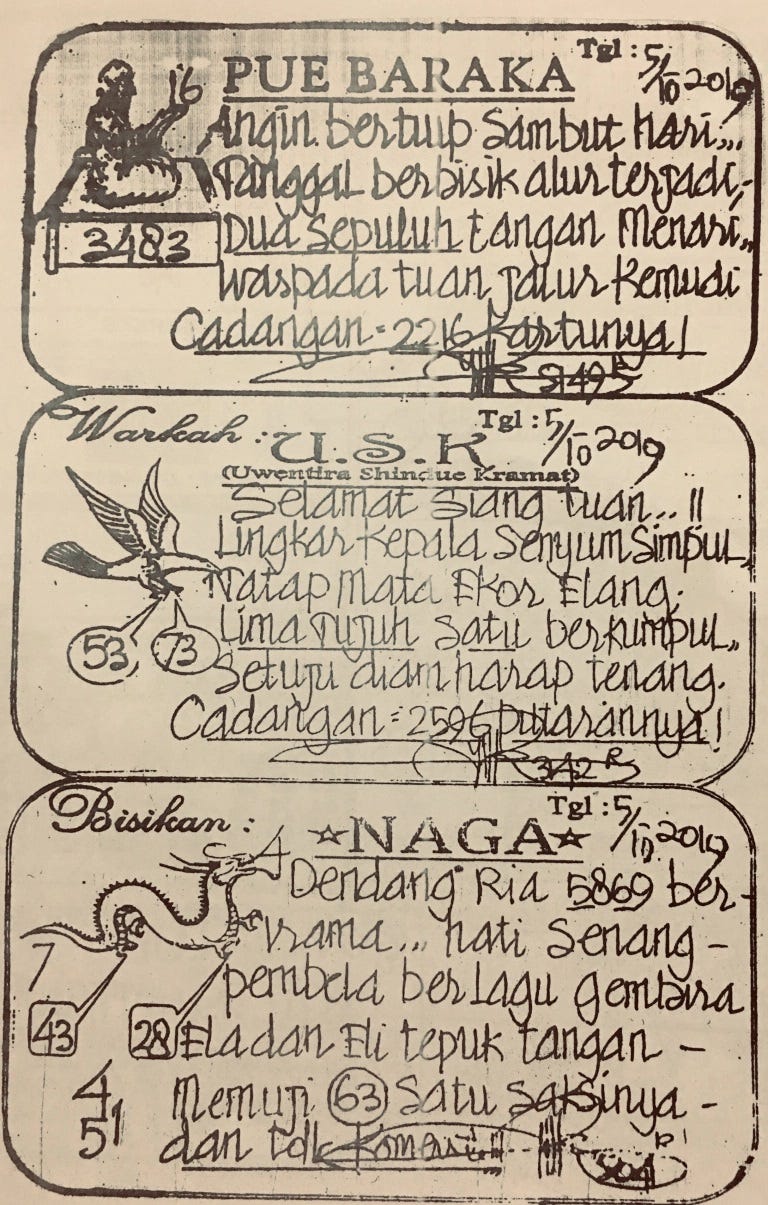 Tgl : 5/10 2019
PUE BARAKA
16
Angin bertiup sambut hari,,,
Tanggal berbisik alur terjadi,-
3483
Dua Sepuluh tangan Menari,,
Waspada tuan jalur Kemudi
Cadangan = 2216 Kartunya!
Warkah :
U.S.K
Tgl : 5/10 2019
(Uwentira Shindue Kramat)
Selamat siang tuan.. !!
Lingkar Kepala Senyum Simpul,,
Natap Mata Ekor Elang.
53
73
Lima Tujuh Satu berkumpul,,
Setuju diam harap tenang.
Cadangan = 2596 putarannya!
342 R
Bisikan :
Tgl : 5/10 2019
NAGA
4
Dendang Ria 5869 ber-
irama... hati Senang -
7
pembela berlagu gembira
43
28
Ela dan Eli tepuk tangan -
4
51
Memuji 63 Satu saksinya -
dan tdk